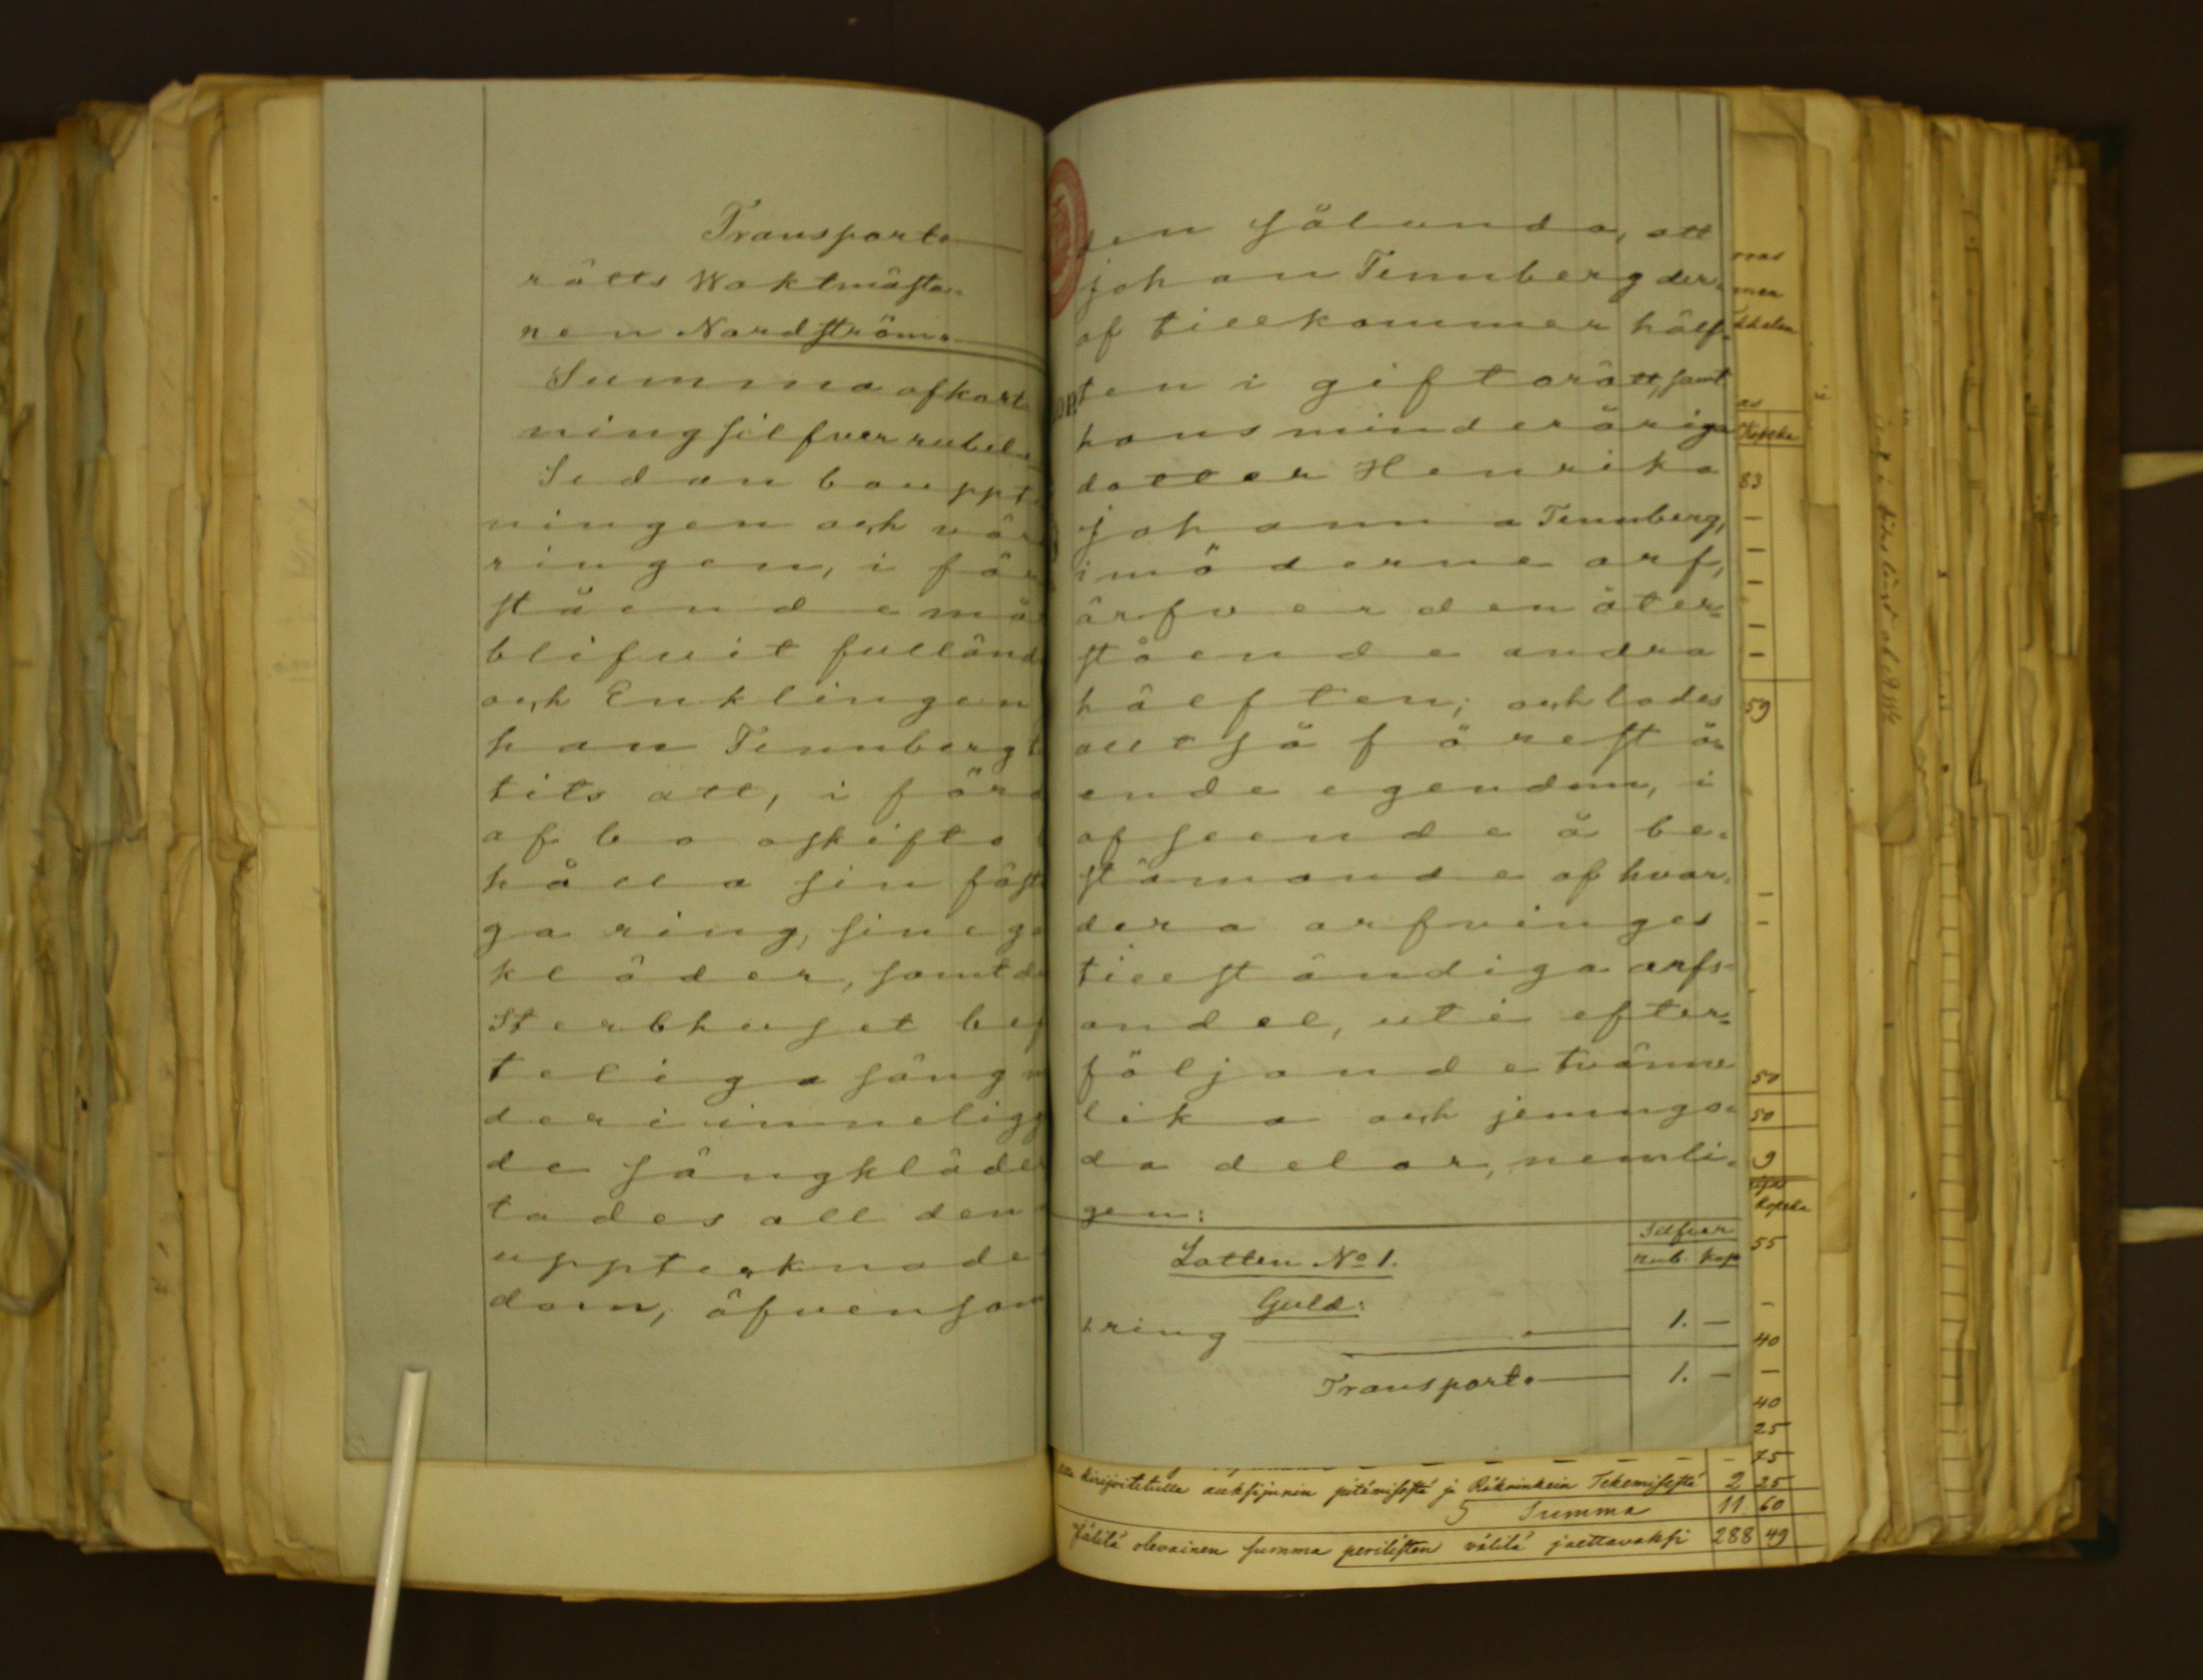 Transport
rätts Waktmästa-
ren Nordström.
Summa afkort
ning silfver rubel
Sedan boupptä
ningen och vär
ringen, i för
stående må
blifvit fulländ
och Enklingen
han Tennberg
tits att, i för
af bo oskifto
hålla sin fäst
ga ring, sin eg
kläder, samt d
Sterbhuset be
teliga säng
deri innelig
de sängkläde
tades all den
upptecknade
dom, äfvensom
en sålunda, att
johan Tennberg der-
af tillkommer hälf-
ten i giftorätt, samt
hans minderåriga
dotter Henrika
johanna Tennberg,
i möderne arf,
ärfver den åter-
stående andra
hälften; och lades
allt så förestå-
ende egendom, i
afseende å be-
stämande af hvar-
dera arfvinges
tillständiga arfs-
andel, uti efter-
följande tvänne
lika och jemngo-
da delar, nemli-
gen:
Silfver
Lotten No 1. rub. kop
Guld:
1 ring 1. —
Transport 1. —
kirjoitetulla auksijunin pitämisestä ja Räkninkein Tekemisestä 2 25
Summa 11 60
Jälilä olevainen summa perilisten välilä jaettavaksi 288 49
Kopeka
83
59
50
50
9
Kopeka
55
40
40
25
75